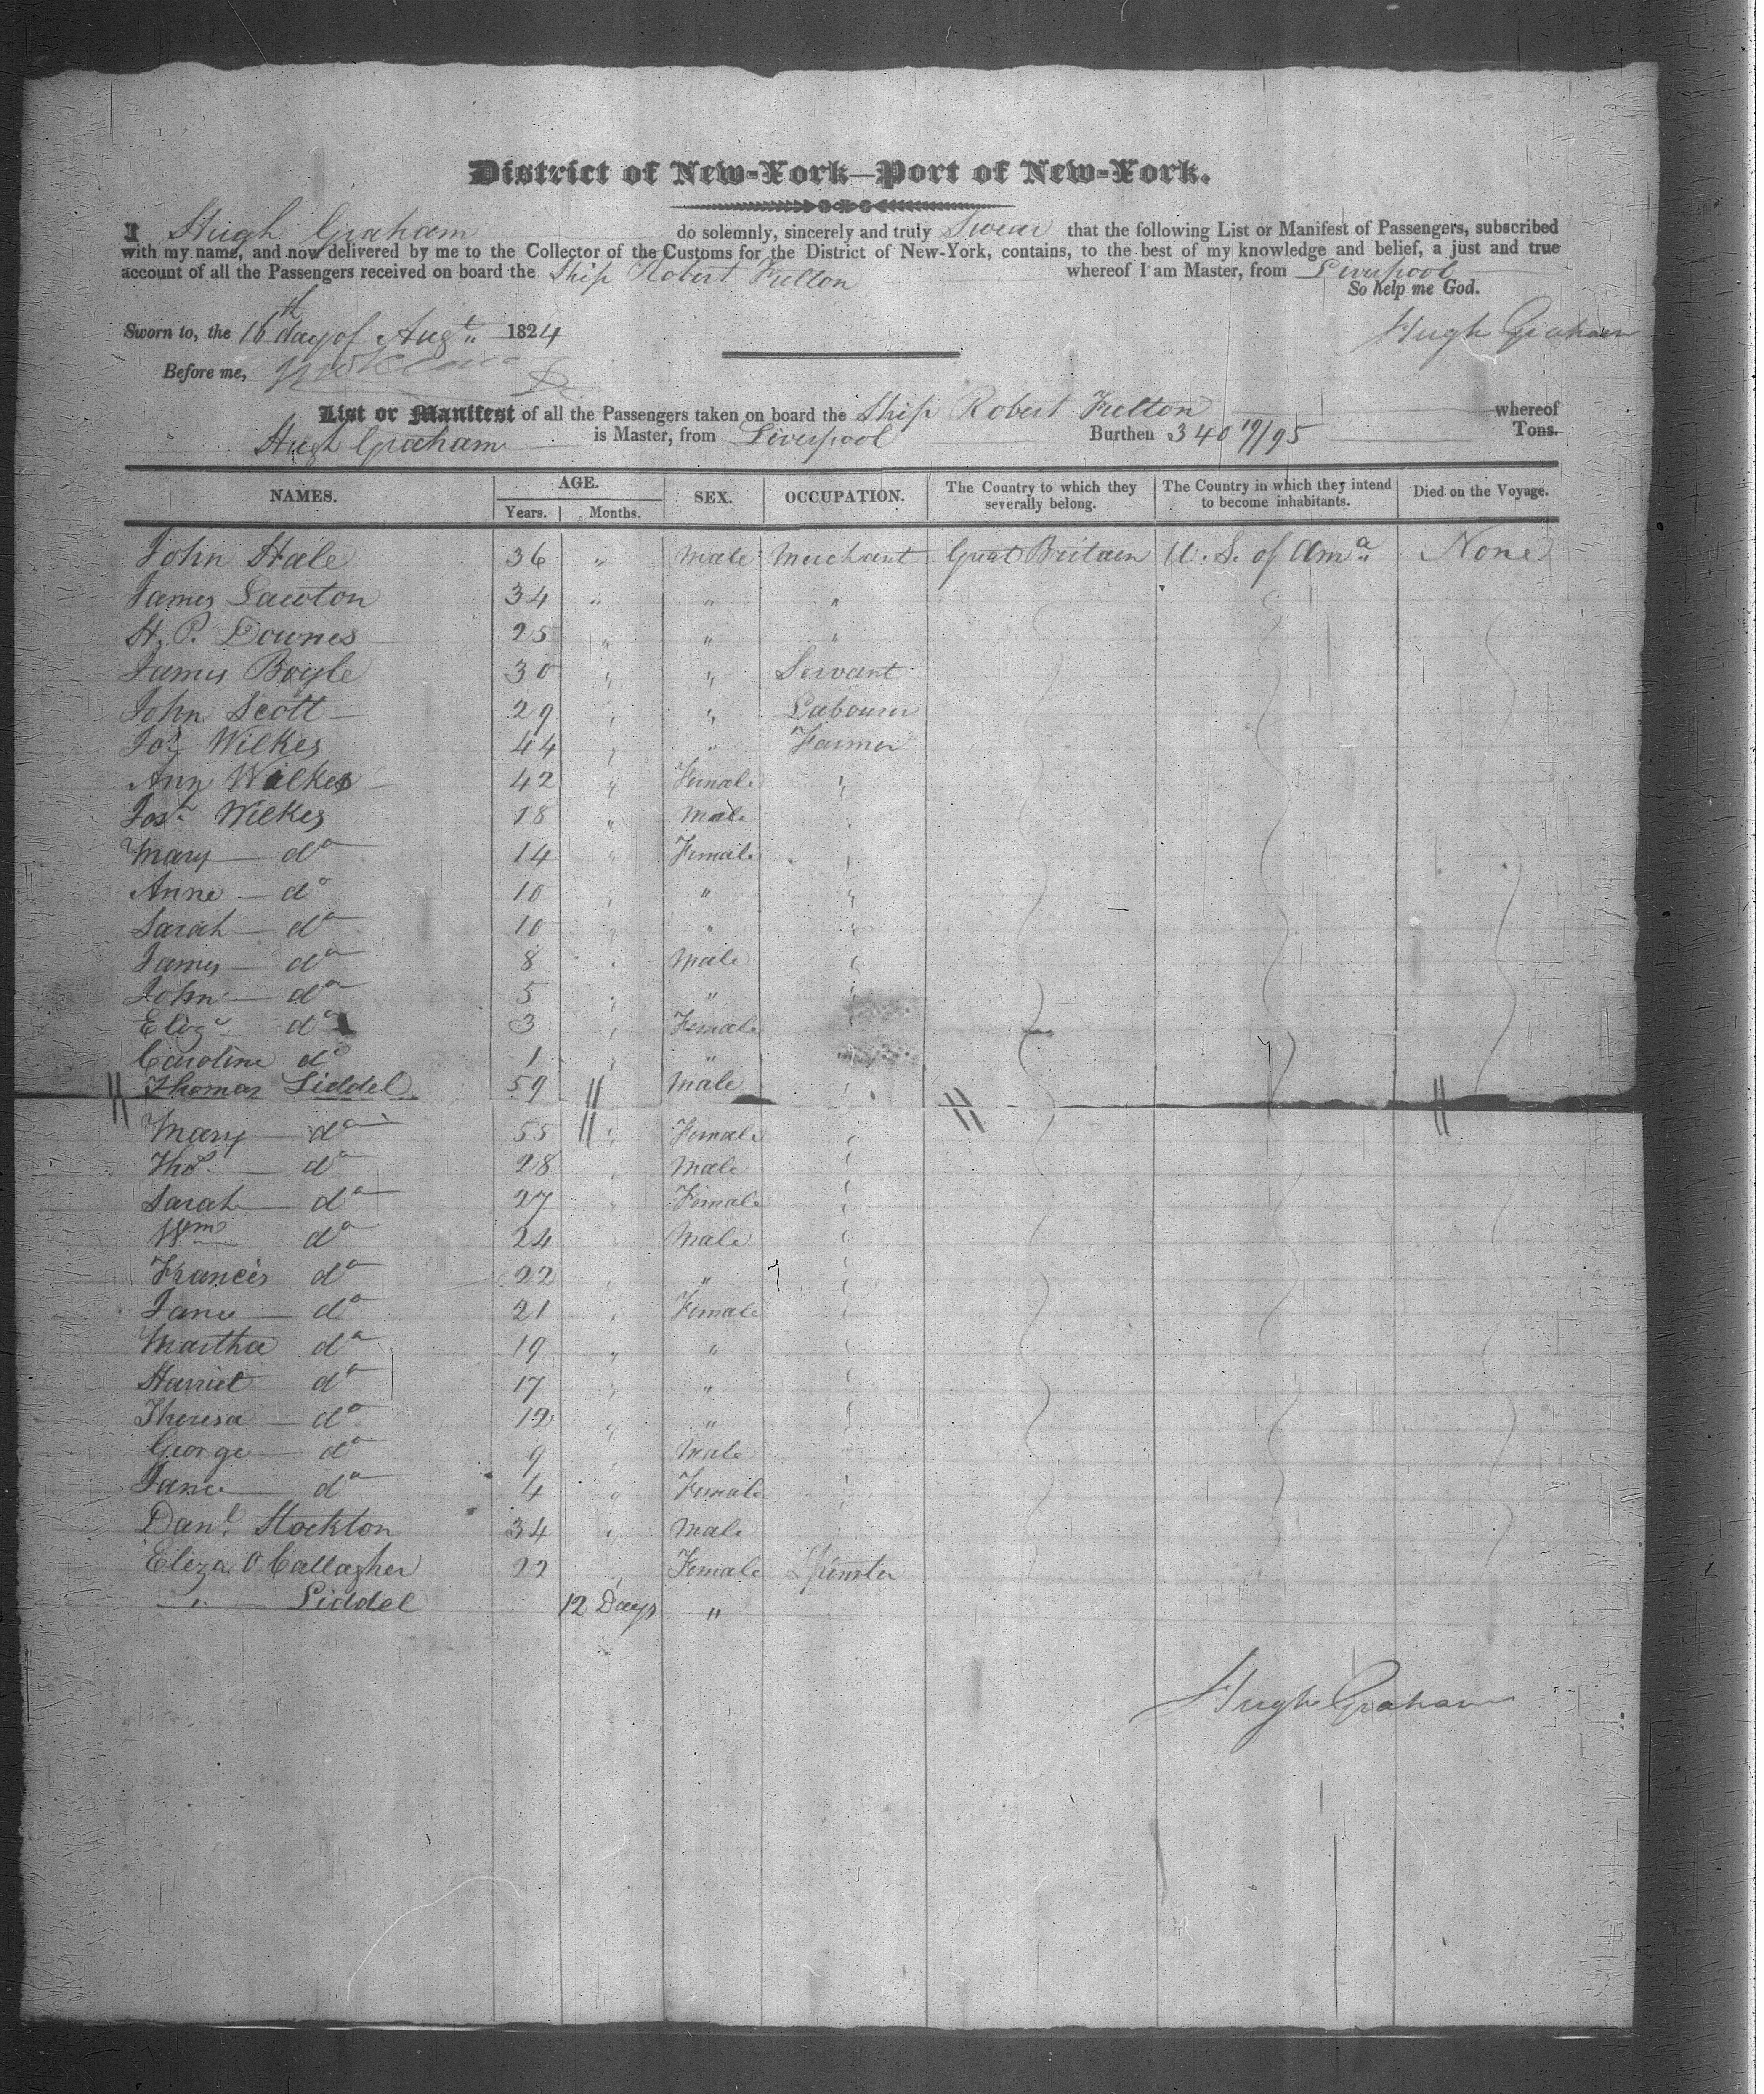 District of New-York—Port of New-York.
I Hugh Graham do solemnly, sincerely and truly Swear that the following List or Manifest of Passengers, subscribed
with my name, and now delivered by me to the Collector of the Customs for the District of New-York, contains, to the best of my knowledge and belief, a just and true
account of all the Passengers received on board the Ship Robert Fulton whereof I am Master, from Liverpool
So help me God.
Sworn to, the 16th day of Augt. 1824 Hugh Graham
Before me,
List or Manifest of all the Passengers taken on board the Ship Robert Fulton whereof
Hugh Graham is Master, from Liverpool Burthen 340 19/95 Tons.
NAMES. AGE. Years. Months. SEX. OCCUPATION. The Country to which they severally belong. The Country in which they intend to become inhabitants. Died on the Voyage.
John Hale 36 " Male Merchant Great Britain U. S. of Ama. None
James Lawton 34 " " "
H. P. Downes 25 " " "
James Boyle 30 " " Servant
John Scott 29 " " Labourer
Jos. Wilkes 44 " " Farmer
Ann Wilkes 42 " Female "
Wilkes 18 " Male
Mary do 14 " Female "
Anne do 10 " " "
Sarah do 10 " " "
James do 8 " Male "
John do 5 " " "
Eliza do 3 " Female "
Caroline do 1 " " "
Thomas Liddel 59 Male "
Mary do 55 " Female "
Thos do 28 " Male "
Sarah do 27 " Female "
Wm do 24 " Male "
Francis do 22 " " "
Jane do 21 " Female "
Martha do 19 " " "
Harriet do 17 " " "
Theresa do 12 " " "
George do 9 " Male "
Jane do 4 " Female "
Danl. Stockton 34 " Male "
Eliza O Callagher 22 " Female Spinster
" Liddel 12 Days "
Hugh Graham